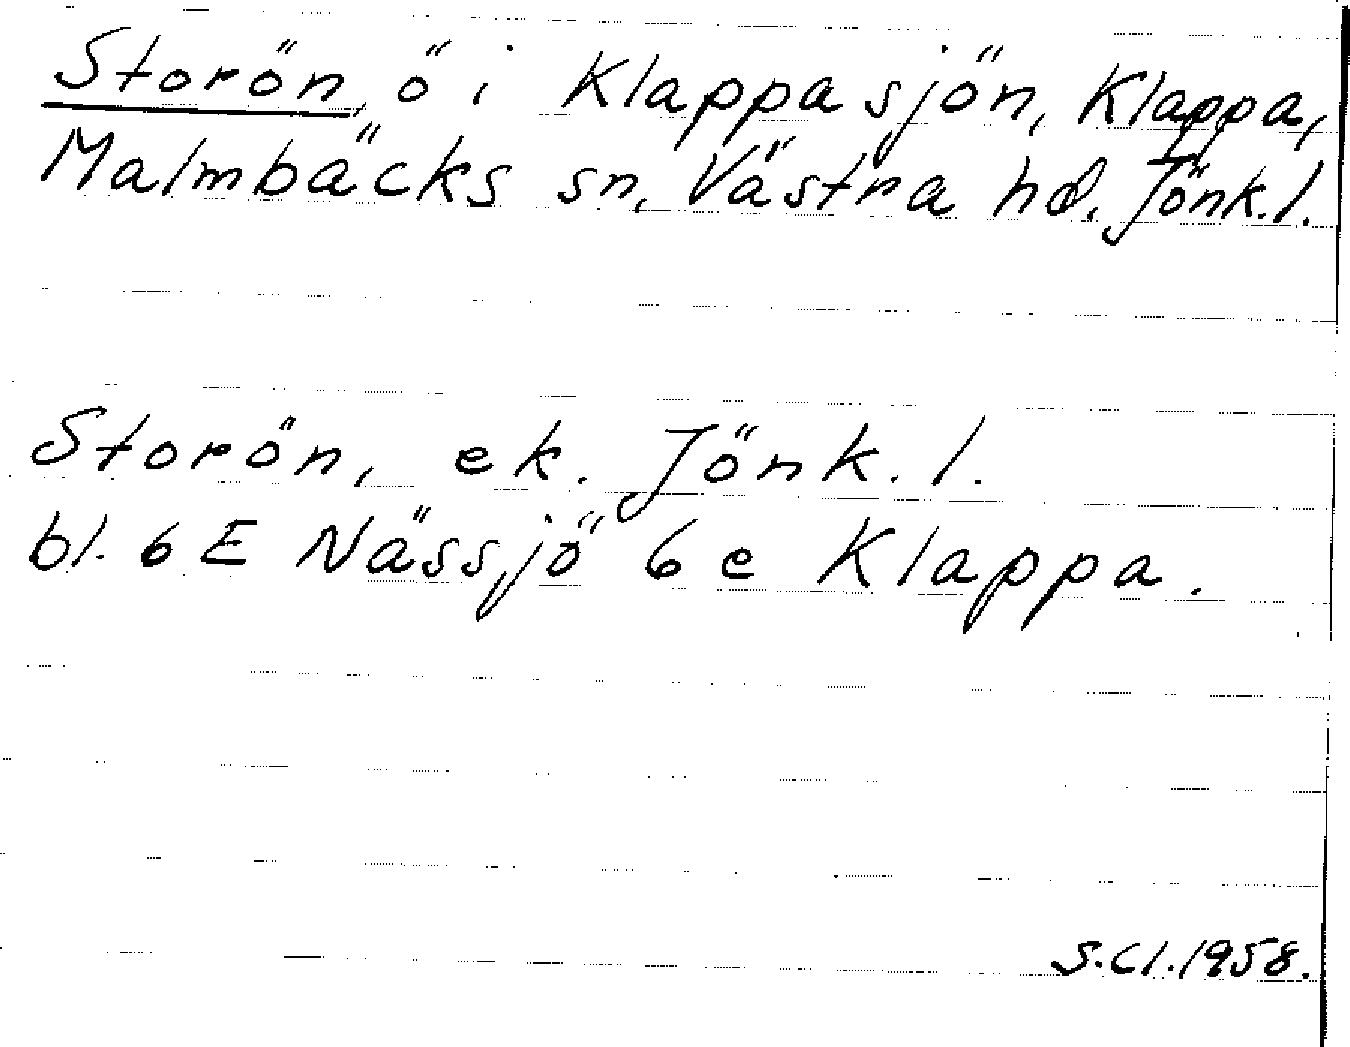 Storön, ö i Klappasjön, Klappa,
Malmbäcks sn, Västra hd. Jönk.l.
Storön, ek. Jönk.l.
bl. 6 E Nässjö 6 e Klappa.
S.Cl.1958.